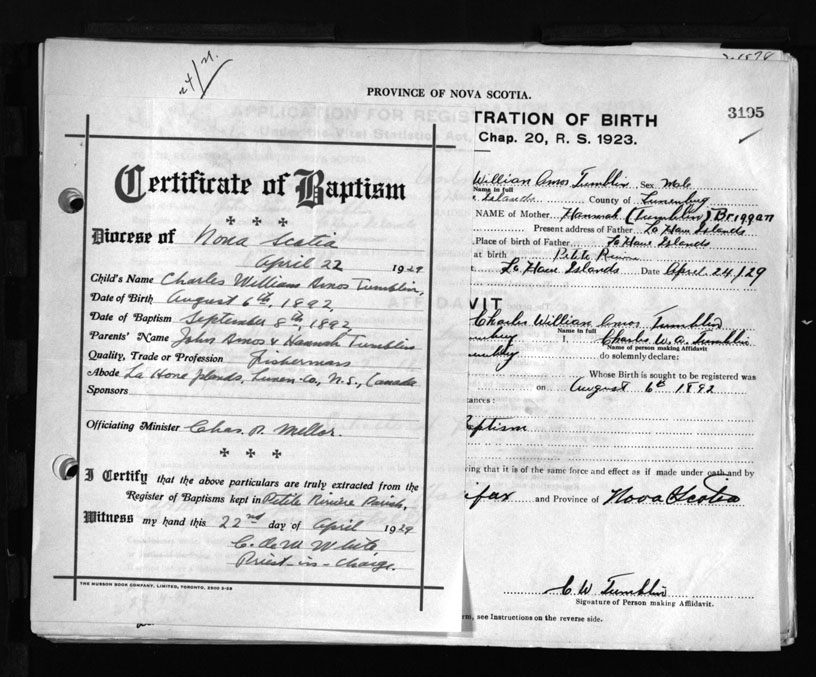 24/21.
PROVINCE OF NOVA SCOTIA.
3195
TRATION OF BIRTH
Chap. 20, R. S. 1923.
Certificate of Baptism
Diocese of Nova Scotia
April 22 1929
Child's Name Charles William Amos Tumblin,
Date of Birth August 6th, 1892
Date of Baptism September 8th, 1892
Parents' Name John Amos & Hannah Tumblin
Quality, Trade or Profession Fisherman
Abode La Have Islands, Lunen-Co, N.S., Canada
Sponsors
Officiating Minister Chas. P. Mellor.
I Certify that the above particulars are truly extracted from the
Register of Baptisms kept in Petite Rivière Parish,
Witness my hand this 22nd day of April 1929
C. de W. White
Priest-in-charge.
THE MUSSON BOOK COMPANY, LIMITED, TORONTO.
William Amos Tumblin Sex Male
Name in full
Islands County of Lunenburg
NAME of Mother Hannah (Tumblin)
Present address of Father La Have Islands
Place of birth of Father La Have Islands
at birth Petite Riviere
La Have Islands Date April 24/29
VIT
Charles William Amos Tumblin
Name in full
I, Charles W. A. Tumblin
Name of person making Affidavit
do solemnly declare:
Whose Birth is sought to be registered was
on August 6th 1892
ances:
aptism
ving that it is of the same force and effect as if made under oath and by
ifax and Province of Nova Scotia
C W Tumblin
Signature of Person making Affidavit.
rm, see Instructions on the reverse side.